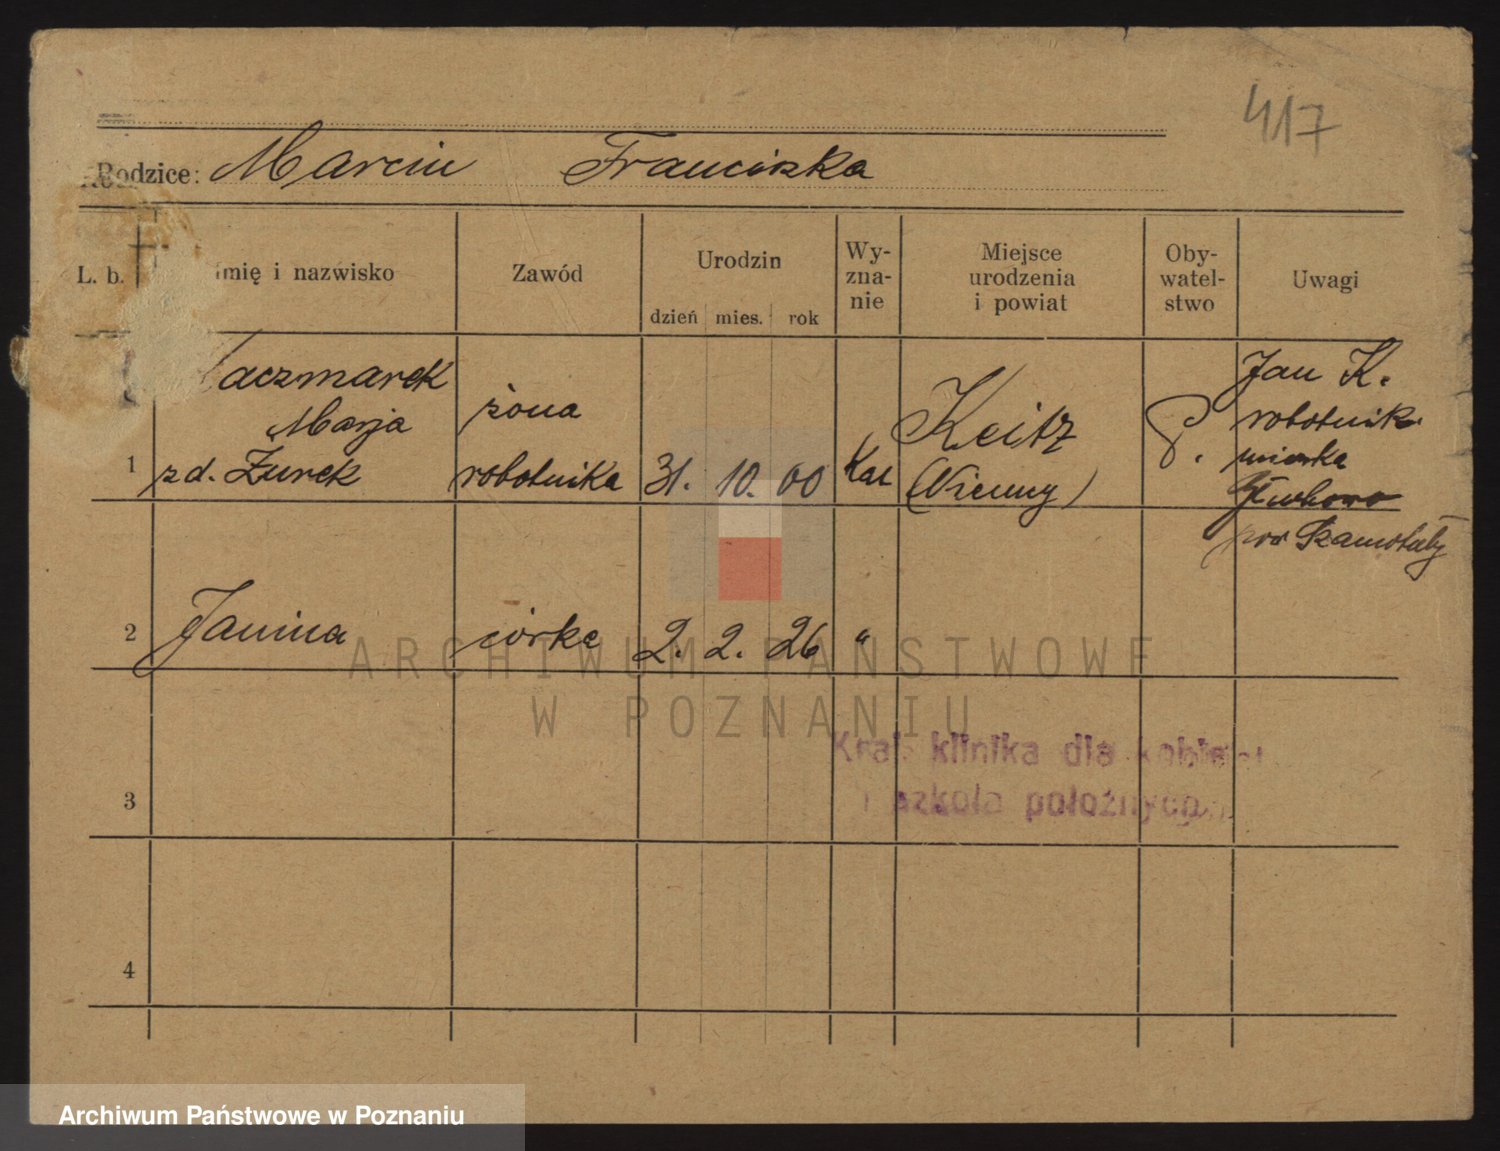 417
Rodzice: Marcin Franciszka
L. b.
imię i nazwisko
Zawód
Urodzin
dzień mies. rok
Wy-
zna-
nie
Miejsce
urodzenia
i powiat
Oby-
watel-
stwo
Uwagi
1
aczmarek
Marja
zd. Żurek
żona
robotnika
31. 10. 00
Kat
Keitz
P.
Jan K.
robotnik
mieszka
pow Szamotuły
2
Janina
córka
2. 2. 26
"
3
4
Kraj. klinika dla kobiet
i szkoła położnych
ARCHIWUM PAŃSTWOWE
W POZNANIU
Archiwum Państwowe w Poznaniu